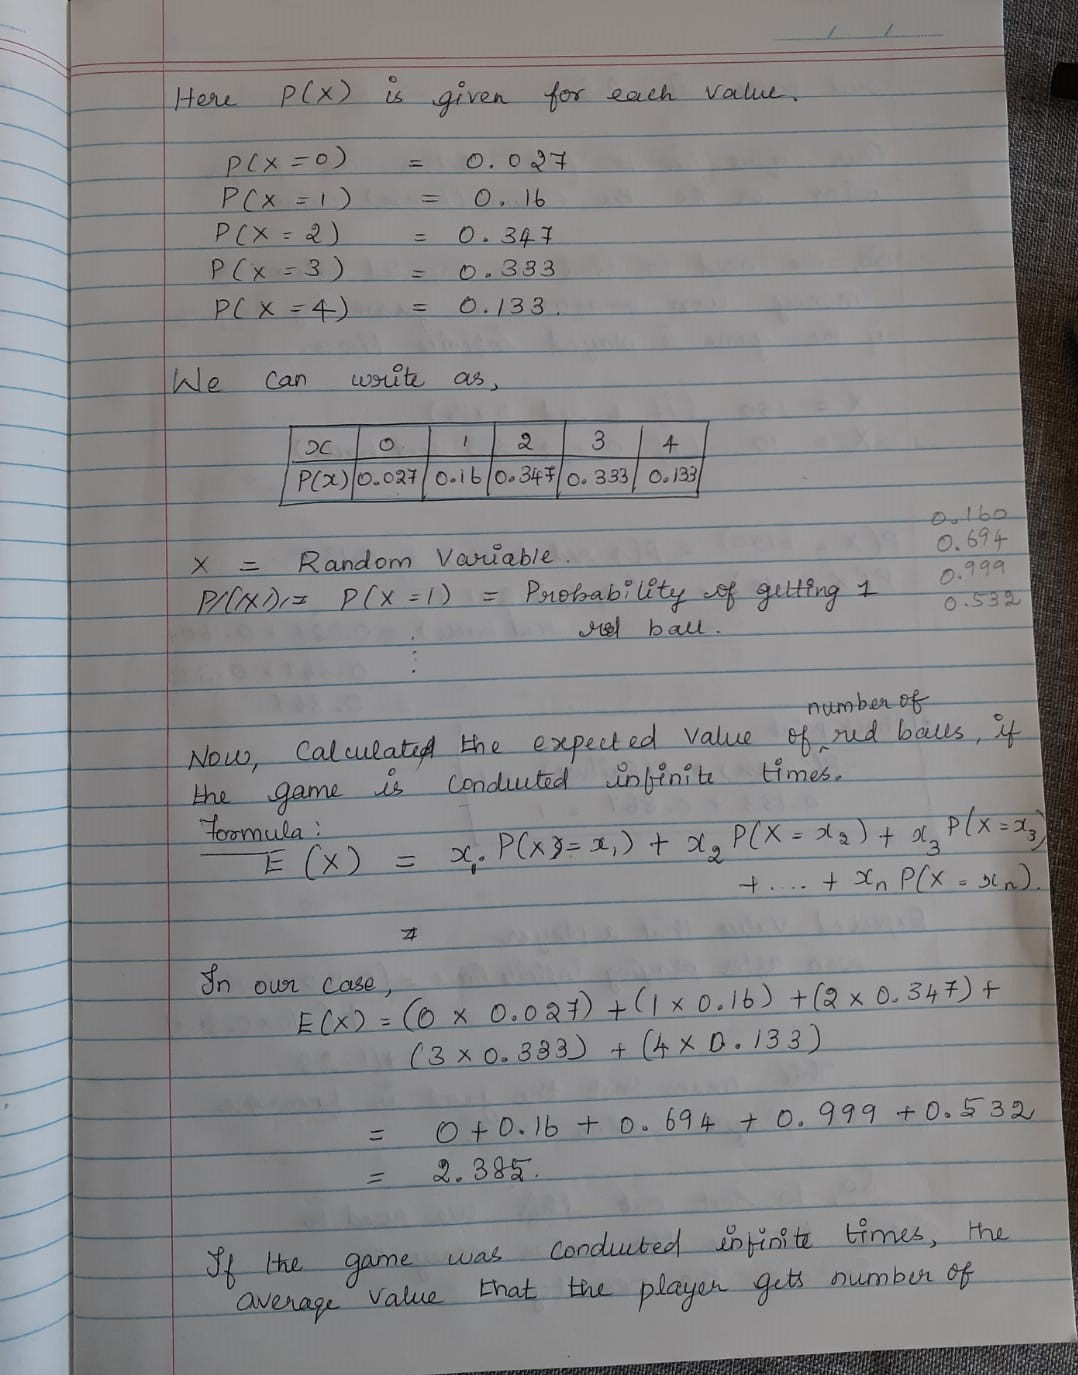 Here P(X) is given for each value.
P(X=0) = 0.027
P(X=1) = 0.16
P(X=2) = 0.347
P(X=3) = 0.333
P(X=4) = 0.133.
We can write as,
x 0 1 2 3 4
P(x) 0.027 0.16 0.347 0.333 0.133
0.160
0.694
0.999
0.532
X = Random Variable.
P(X) = P(X=1) = Probability of getting 1
red ball.
⋮
number of
Now, Calculated the expected value of red balls, if
the game is conducted infinite times.
Formula:
E(X) = x₁. P(X = x₁) + x₂ P(X = x₂) + x₃ P(X = x₃)
+ .... + xₙ P(X = xₙ).
In our case,
E(X) = (0 × 0.027) + (1 × 0.16) + (2 × 0.347) +
(3 × 0.333) + (4 × 0.133)
= 0 + 0.16 + 0.694 + 0.999 + 0.532
= 2.385.
If the game was conducted infinite times, the
average value that the player gets number of